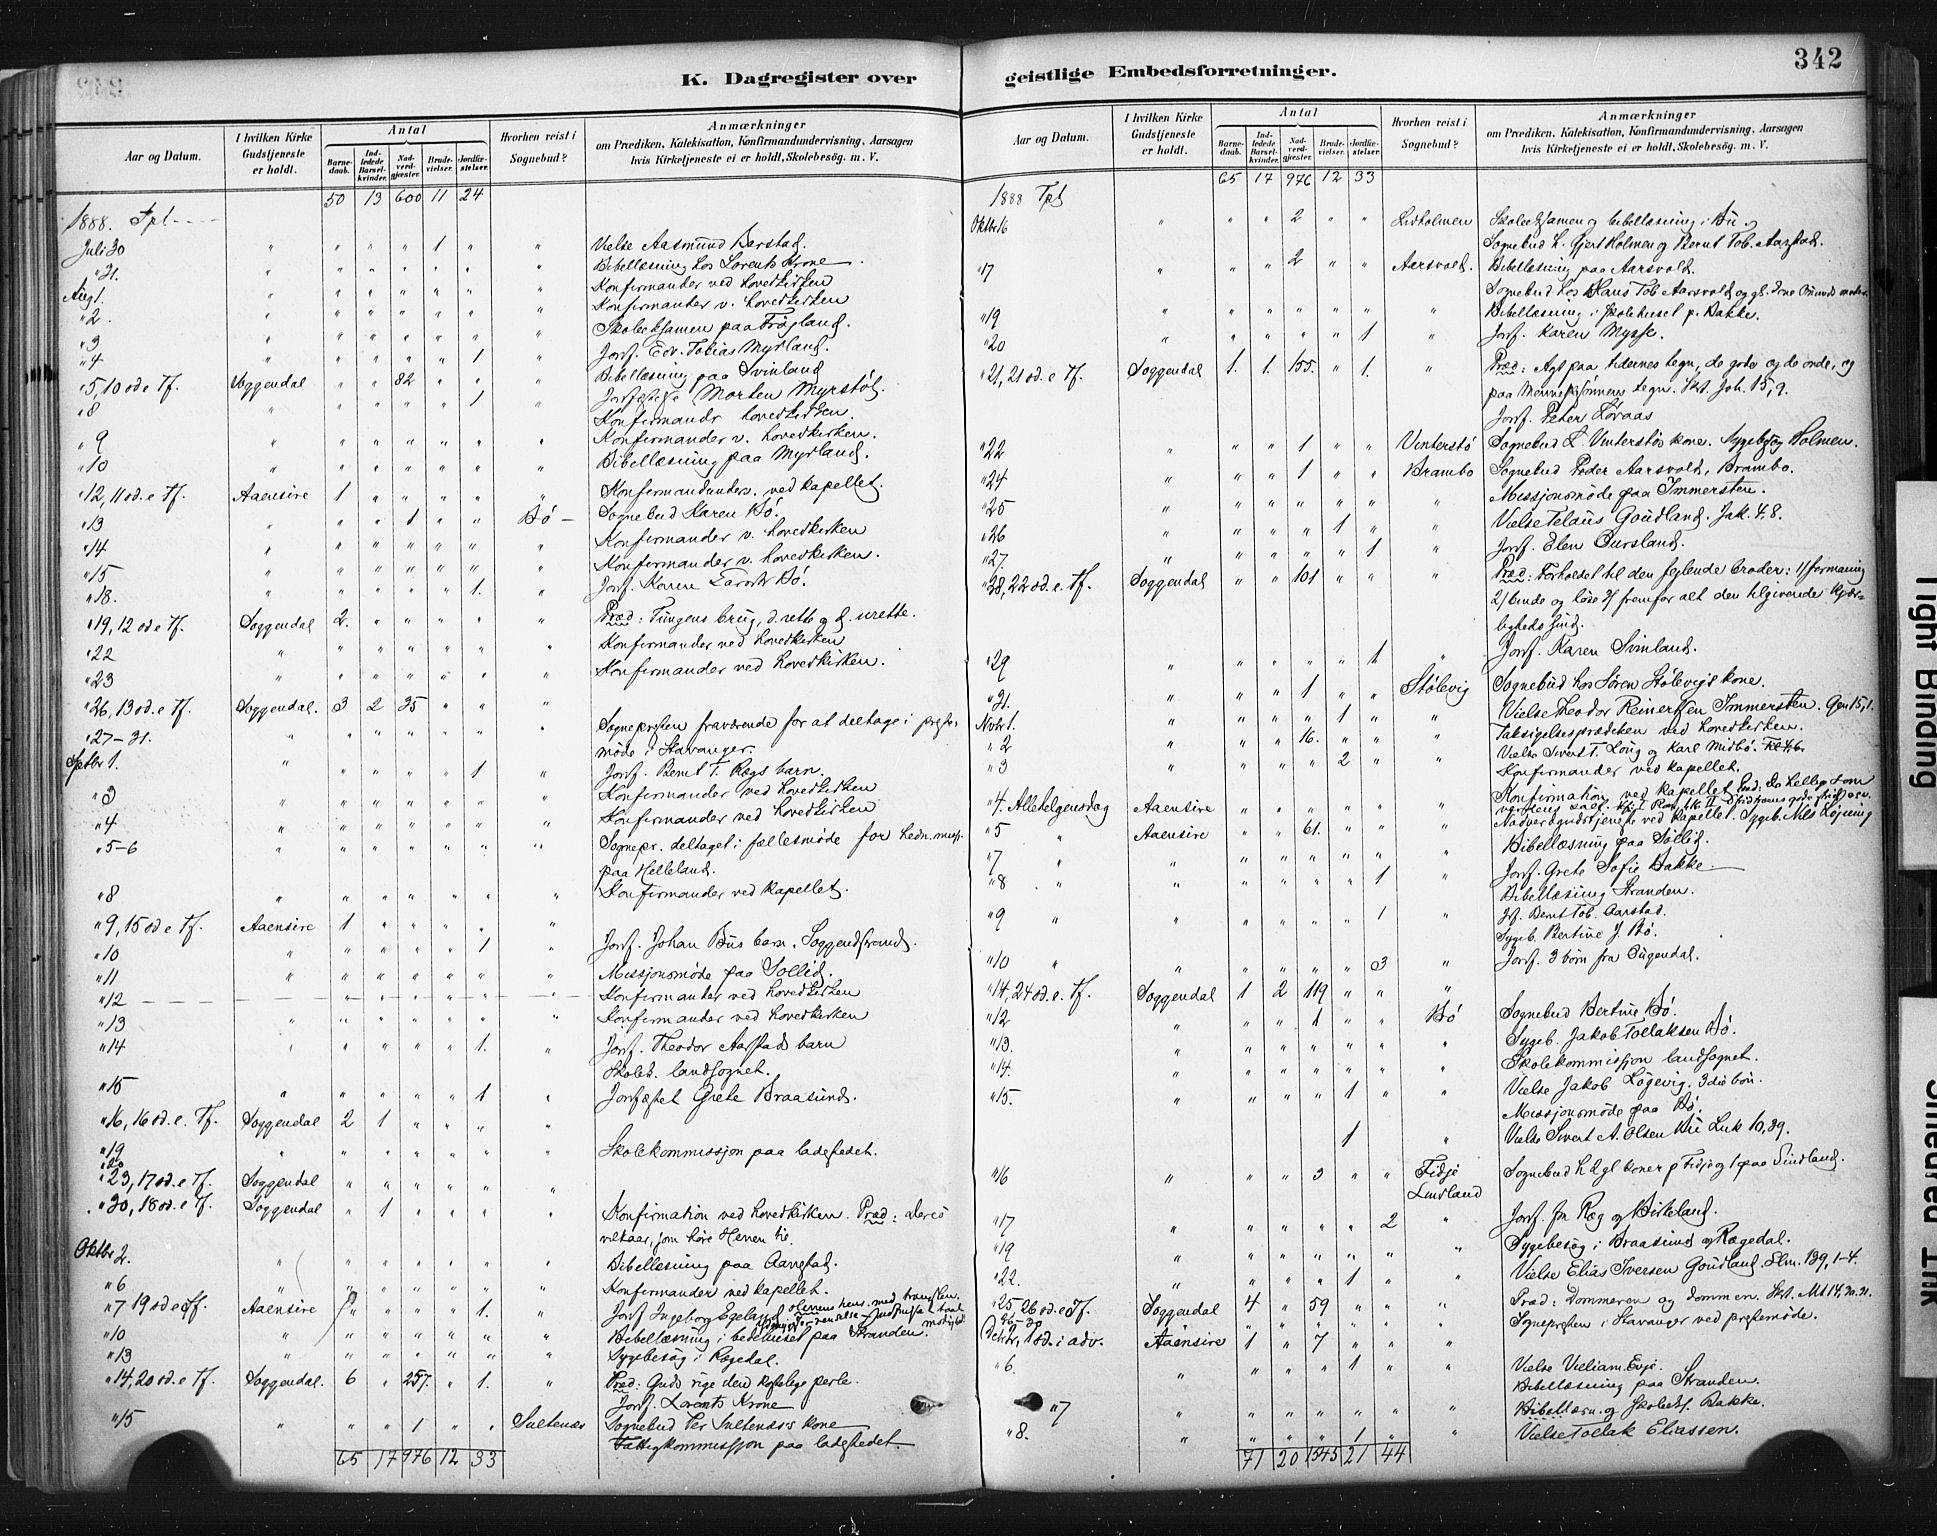 342
K. Dagregister over geistlige Embedsforretninger.
Aar og Datum. I hvilken Kirke Gudstjeneste er holdt. Antal Barnedaab. Indledede Barselkvinder. Nadverdgjæster. Brudevielser. Jordfæstelser. Hvorhen reist i Sognebud? Anmærkninger om Prædiken, Katekisation, Konfirmandundervisning, Aarsagen hvis Kirketjeneste ei er holdt, Skolebesøg. m. V.
50 13 600 11 24
1888. Tpt
Juli 30 " " " " 1 " " Vielse Aasmund Barstad.
" 31. " " " " " " " Bibellæsning hos Lorents Krone
Aug 1. " " " " " " " Konfirmander ved hovedkirken
" 2. " " " " " " " Konfirmander v. hovedkirken
" 3 " " " " " " " Skoleeksamen paa Frøyland.
" 4 " " " " " 1 " Jordf. Edv. Tobias Myrland.
Bibellæsning paa Svinland
" 5, 10 sd. e Tf. Soggendal " " 82 " " "
" 8 " " " " " 1 " Jordfæstelse Morten Myrstøl
Konfirmandr hovedkirken.
" 9 " " " " " " " Konfirmander v. hovedkirken.
" 10 " " " " " " " Bibellæsning paa Myrland.
" 12, 11 sd. e Tf. Aaensire 1 " " " " " Konfirmandunderv. ved kapellet.
" 13 " " " 1 " " Bø Sognebud Karen Bø.
" 14 " " " " " " " Konfirmander v. hovedkirken
" 15 " " " " " " " Konfirmander v. hovedkirken.
" 18. " " " " " 1. " Jordf. Karen Bø.
" 19, 12 sd e Tf. Soggendal 2. " " " " " Præd: Tungens brug, d. rette og d. urette.
" 22 " " " " " " " Konfirmander ved hovedkirken
" 23 " " " " " " " Konfirmander ved hovedkirken.
" 26, 13 sd. e Tf. Soggendal. 3 2 35 " " "
" 27-31. " Sognepresten fraværende for at deltage i preste-
møde i Stavanger.
Septbr 1. " " " " " 1 " Jordf. Bernt T. Rægs barn.
" 3 " " " " " " " Konfirmander ved hovedkirken
" 4 " " " " " " " Konfirmander ved hovedkirken
" 5-6 " " " " " " " Sognepr. deltaget i fællesmøde for hedn. miss.
paa Helleland.
" 8 " " " " " " " Konfirmander ved kapellet.
" 9, 15 sd e Tf. Aaensire 1 " " " " "
" 10 " " " " " 1 " Jordf. Johan Bus barn. Soggendstrand.
" 11 " " " " " " " Missjonsmøde paa Sollid.
" 12 " " " " " " Konfirmander ved hovedkirken
" 13 " " " " " " " Konfirmander ved hovedkirken
" 14 " " " " " 1. " Jordf. Theodor Aarstads barn
Skolek. landsognet.
" 15 " " " " " 1 " Jordfæstet Grete Braasund.
" 16, 16 sd. e. Tf. Soggendal 2 1 " " " "
" 19 " " " " " " " Skolekommissjon paa ladestedet.
" 20
" 23, 17 sd. e Tf. Soggendal " " " " " "
" 30, 18 sd. e Tf. Soggendal " 1 " " " " Konfirmation ved hovedkirken. Præd:
vilkaar, som høre Herren til.
Oktbr 2. " " " " " " " Bibellæsning paa Aarstad.
" 6 " " " " " " " Konfirmander ved kapellet.
" 7 19 sd e Tf. Aaensire " " " " 1. " Jordf Ingeborg Egeland
" 10 " " " " " " " Bibellæsning i bedehuset paa Stranden.
" 13 " " " " " " " Sygebesøg i Rægedal.
" 14, 20 sd. e Tf. Soggendal. 6 " 257. " 1. " Præd: Guds rige den kostelige perle.
Jordf. Lorents Krone
" 15 " " " 1 " " Sultenæs Sognebud Per Sultenæss kone
Fattigkommissjon paa ladestedet.
65 17 976 12 33
Aar og Datum. I hvilken Kirke Gudstjeneste er holdt. Antal Barnedaab. Indledede Barselkvinder. Nadverdgjæster. Brudevielser. Jordfæstelser. Hvorhen reist i Sognebud? Anmærkninger om Prædiken, Katekisation, Konfirmandundervisning, Aarsagen hvis Kirketjeneste ei er holdt, Skolebesøg. m. V.
65 17 976 12 33
1888 Tpt
Oktbr 16 " " " 2 " " Lidholmen Skoleeksamen og bibellæsning i Bu
Sognebud h. Gjert Holmen og Bernt Tob. Aarstad.
" 17 " " " 2 " " Aarsvold. Bibellæsning paa Aarsvold.
Sognebud hos Hans Tob Aarsvold og gl.
" 19 " " " " " " " Bibellæsning i skolehuset p. Bakke.
" 20 " " " " " 1 " Jordf. Karen Mysse.
" 21, 21 sd. e Tf. Soggendal 1. 1. 155. " 1. " Præd: Agt paa tidernes tegn, de gode og de onde, og
paa Menneskesønnens tegn. Skt. Joh. 15, 9.
Jordf. Peter Løvaas
" 22 " " " 1 " " Vinterstø Sognebud t. Vinterstøs kone. Sygebesøg Holmen.
" 24 " " " 1 " " Brambo Sognebud Peder Aarsvold, Brambo.
" 25 " " " " " " " Missjonsmøde paa Immersten.
" 26 " " " " 1 " " Vielse Telaus Goudland. Jak. 4. 8.
" 27. " " " " " 1 " Jordf. Elen Oursland.
" 28, 22 sd. e. Tf. Soggendal " " 101 " " " Præd: Forholdet til den feilende broder: 1/ formaning
2/ binde og løse 3/ fremfor alt den tilgivende kjær-
ligheds sind.
" 29 " " " " " 1 " Jordf. Karen Svinland.
" 31. " " " 1 " " Stølevig Sognebud hos Søren Stølevigs kone.
Novbr 1. " " " " 1 " " Vielse Theodor Reinertsen Immersten. Gen 15, 1.
" 2 " " " 16. " " " Taksigelsesprædiken ved hovedkirken.
" 3 " " " " 2 " " Vielse Sivert T. Loug og Karl Midbø.
Konfirmander ved kapellet.
" 4. Allehelgensdag Aaensire " " " " " " Konfirmation ved kapellet
" 5 " Aaensire " " 61. " " " Nadverdgudstjeneste ved kapellet. Sygeb. Nils Løining
" 7 " " " " " " " Bibellæsning paa Sollid.
" 8 " " " " " 1 " Jordf. Grete Sofie Bakke
Bibellæsning Stranden.
" 9 " " " " " 1 " Jf. Bernt Tob. Aarstad.
Sygeb. Bertine J. Bø.
" 10 " " " " " 3 " Jordf. 3 børn fra Rægedal.
" 14, 24 sd. e. Tf. Soggendal 1 2 119 " " "
" 12 " " " 1 " " Bø Sognebud Bertine Bø.
" 13. " " " " " " " Sygeb. Jakob Tollaksen Bø.
" 14. " " " " " " " Skolekommissjon landsognet.
" 15. " " " " 1 " " Vielse Jakob Løgevig.
Missjonsmøde paa Bø.
1 " Vielse Sivert A. Olsen Bu Luk 10, 39.
" 16 " " " 3 " " Fidje Lindland Sognebud h 2 gl koner p Fidje og 1 paa Lindland.
" 17 " " " " " 2 " Jordf. fra Ræg og Birkeland.
" 19 " " " " " " " Sygebesøg i Braasund og Rægedal.
" 22. " " " " 1 " " Vielse Elias Iversen Goudland. Slm. 139, 1-4.
" 25, 26 sd. e. Tf. Soggendal 4 " 59 " " " Præd: Dommeren og dommen. Skt. Mt 14, 20. 21.
" 26-30 Sognepresten i Stavanger ved prestemøde.
Decbr, 1 sd. i adv. Aaensire 1 " 7 " " "
" 6. " " " " 1 " " Vielse Villiam Evje.
Bibellæsning paa Stranden.
" 7 " " " " " " " Bibellæsn. og Skolebes. Bakke.
" 8. " " " " 1 " " Vielse Tollak Eliassen.
71 20 1545 21 44
Tight Binding